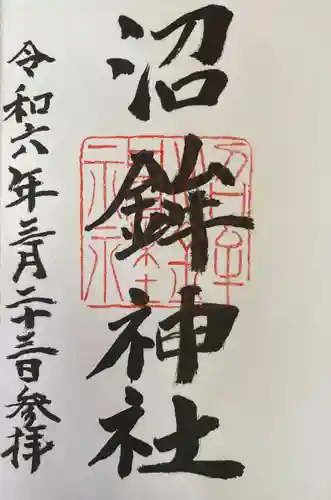 沼鉾神社
令和六年三月二十三日参拝